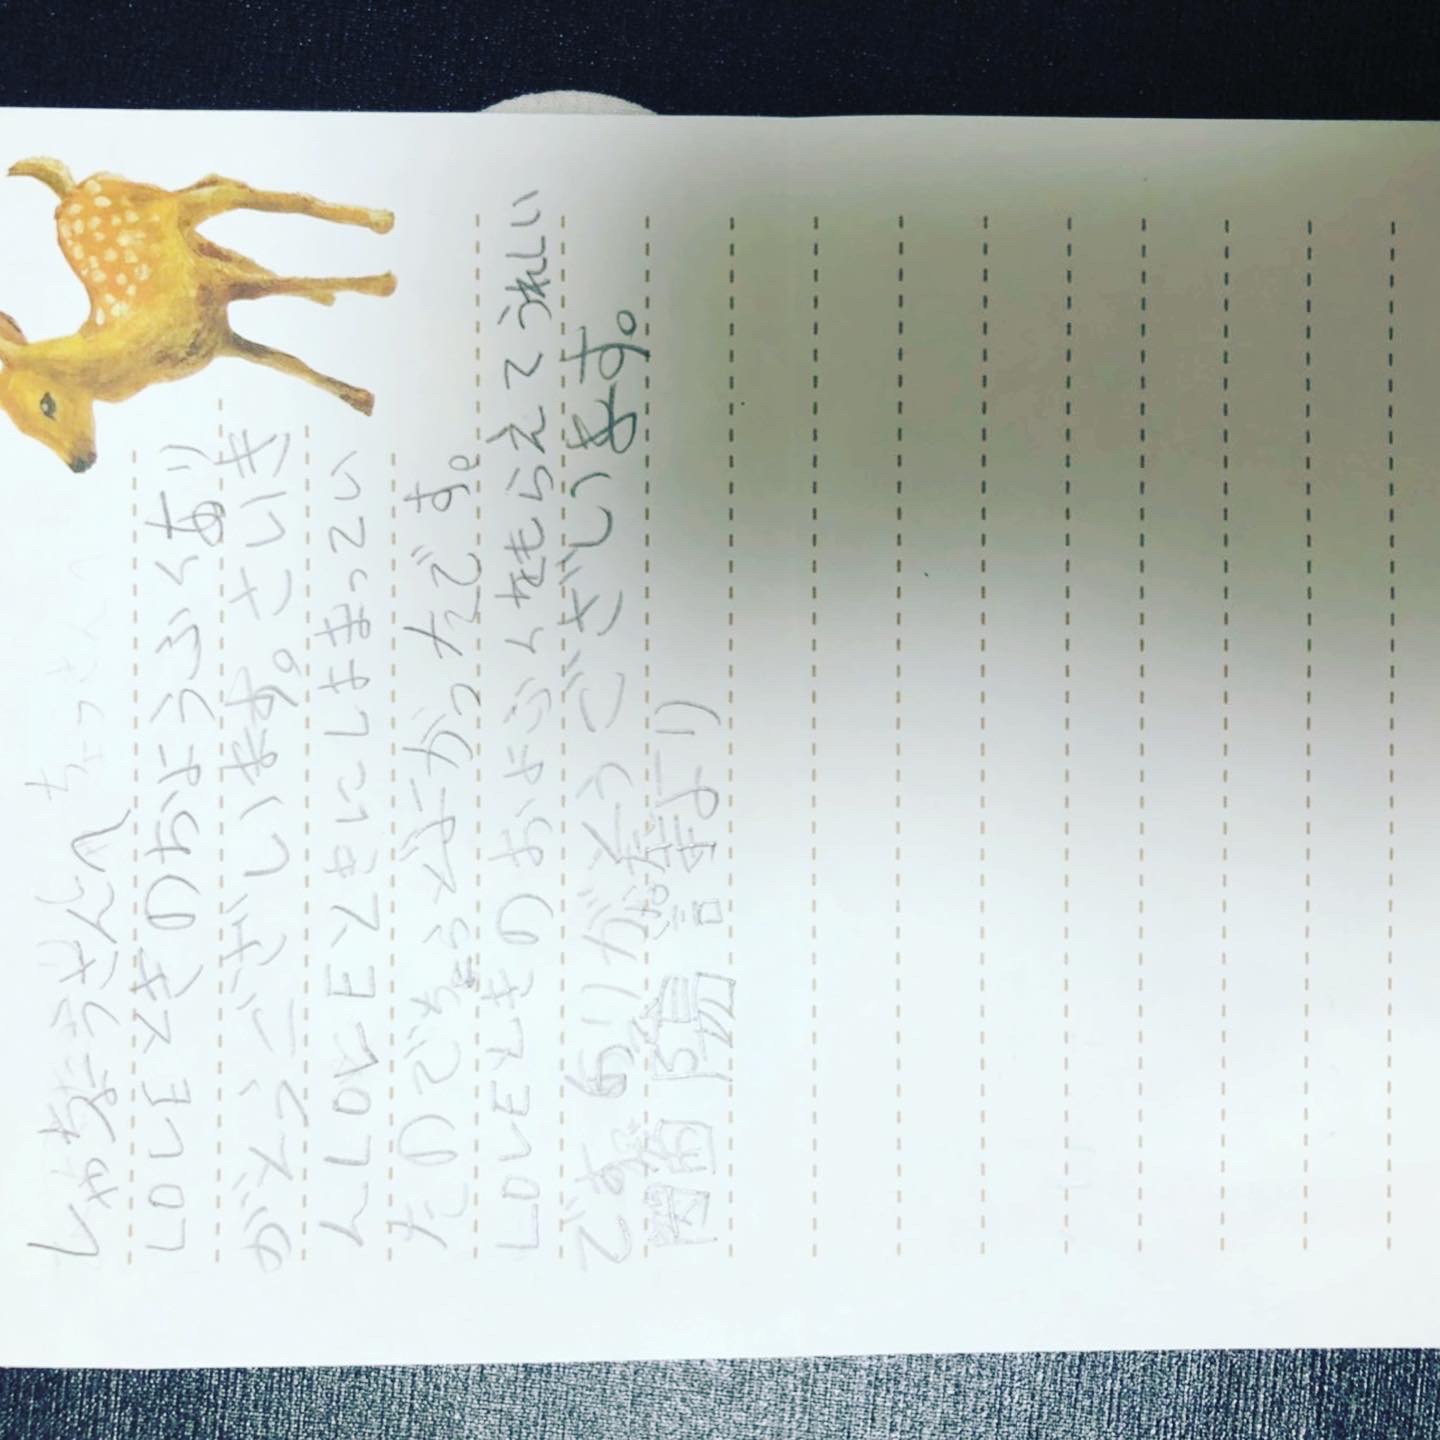 しゃちょうさんへ
LOVEときのおようふくあり
がとうございます。さいき
んLOVEときにしまってい
たのでちょうどよかったです。
LOVEときのおよふくをもらえてうれしい
です ありがとうございます。
より